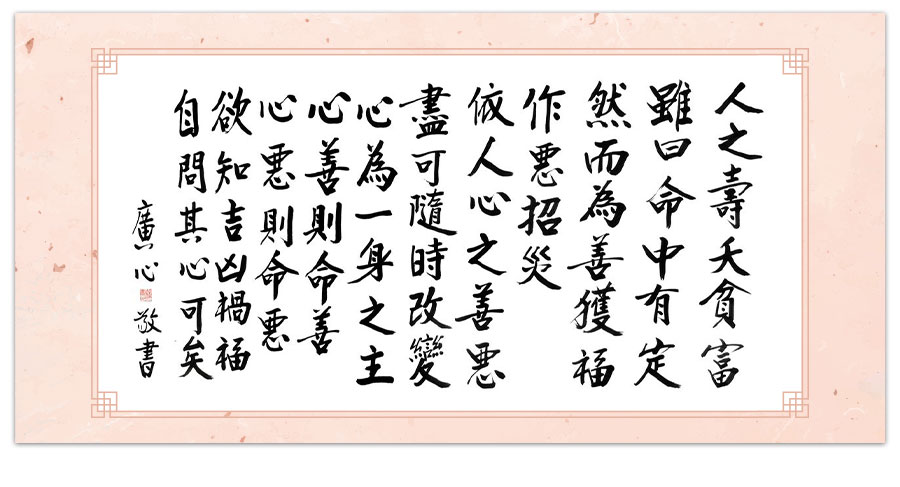 人之壽夭貧富
雖曰命中有定
然而為善獲福
作惡招災
依人心之善惡
盡可隨時改變
心為一身之主
心善則命善
心惡則命惡
欲知吉凶禍福
自問其心可矣
廣心 敬書